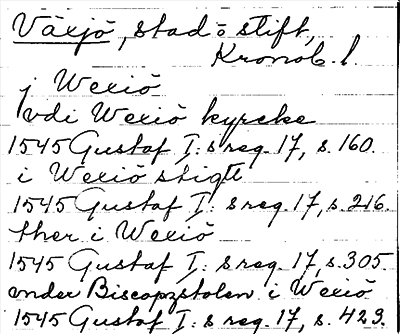 Växjö, stad o stift,
Kronob. l.
j Wexiö
vdi Wexiö kyrcke
1545 Gustaf I:s reg. 17, s. 160.
i Wexiö stigtt
1545 Gustaf I:s reg. 17, s. 216.
ther i Wexiö
1545 Gustaf I:s reg. 17, s. 305
vnder Biscopzstolen i Wexiö
1545 Gustaf I:s reg. 17, s. 423.